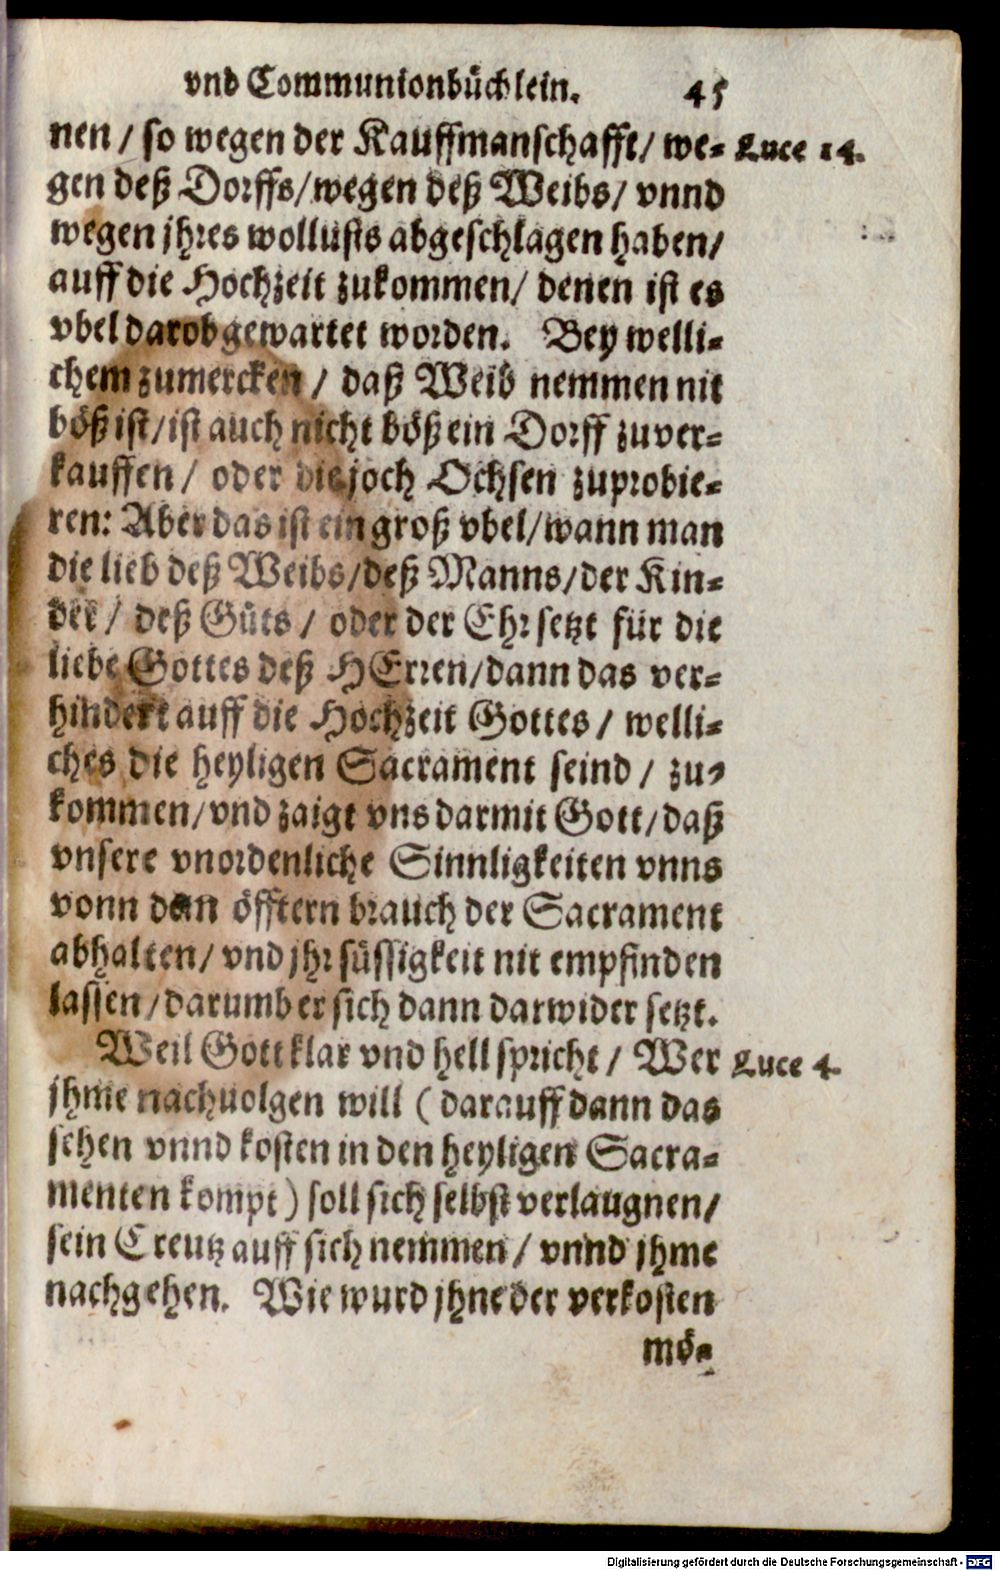 vnd Communionbüchlein. 45
nen / so wegen der Kauffmanschafft/ we= Luce 14.
gen deß Dorffs/wegen deß Weibs/ vnnd
wegen jhres wollusts abgeschlagen haben/
auff die Hochzeit zukommen/ denen ist es
vbel darob gewartet worden. Bey welli=
chem zumercken / daß Weib nemmen nit
böß ist/ist auch nicht böß ein Dorff zuver=
kauffen / oder die joch Ochsen zuprobie=
ren: Aber das ist ein groß vbel/wann man
die lieb deß Weibs/deß Manns/der Kin=
der / deß Gůts / oder der Ehr setzt für die
liebe Gottes deß HErren/dann das ver=
hindert auff die Hochzeit Gottes / welli=
ches die heyligen Sacrament seind / zu=
kommen/vnd zaigt vns darmit Gott/daß
vnsere vnordenliche Sinnligkeiten vnns
vonn den öfftern brauch der Sacrament
abhalten/ vnd jhr süssigkeit nit empfinden
lassen/darumb er sich dann darwider setzt.
Weil Gott klar vnd hell spricht / Wer Luce 4.
jhme nachuolgen will ( darauff dann das
sehen vnnd kosten in den heyligen Sacra=
menten kompt ) soll sich selbst verlaugnen/
sein Creutz auff sich nemmen / vnnd jhme
nachgehen. Wie wurd jhne der verkosten
mö=
Digitalisierung gefördert durch die Deutsche Forschungsgemeinschaft - DFG